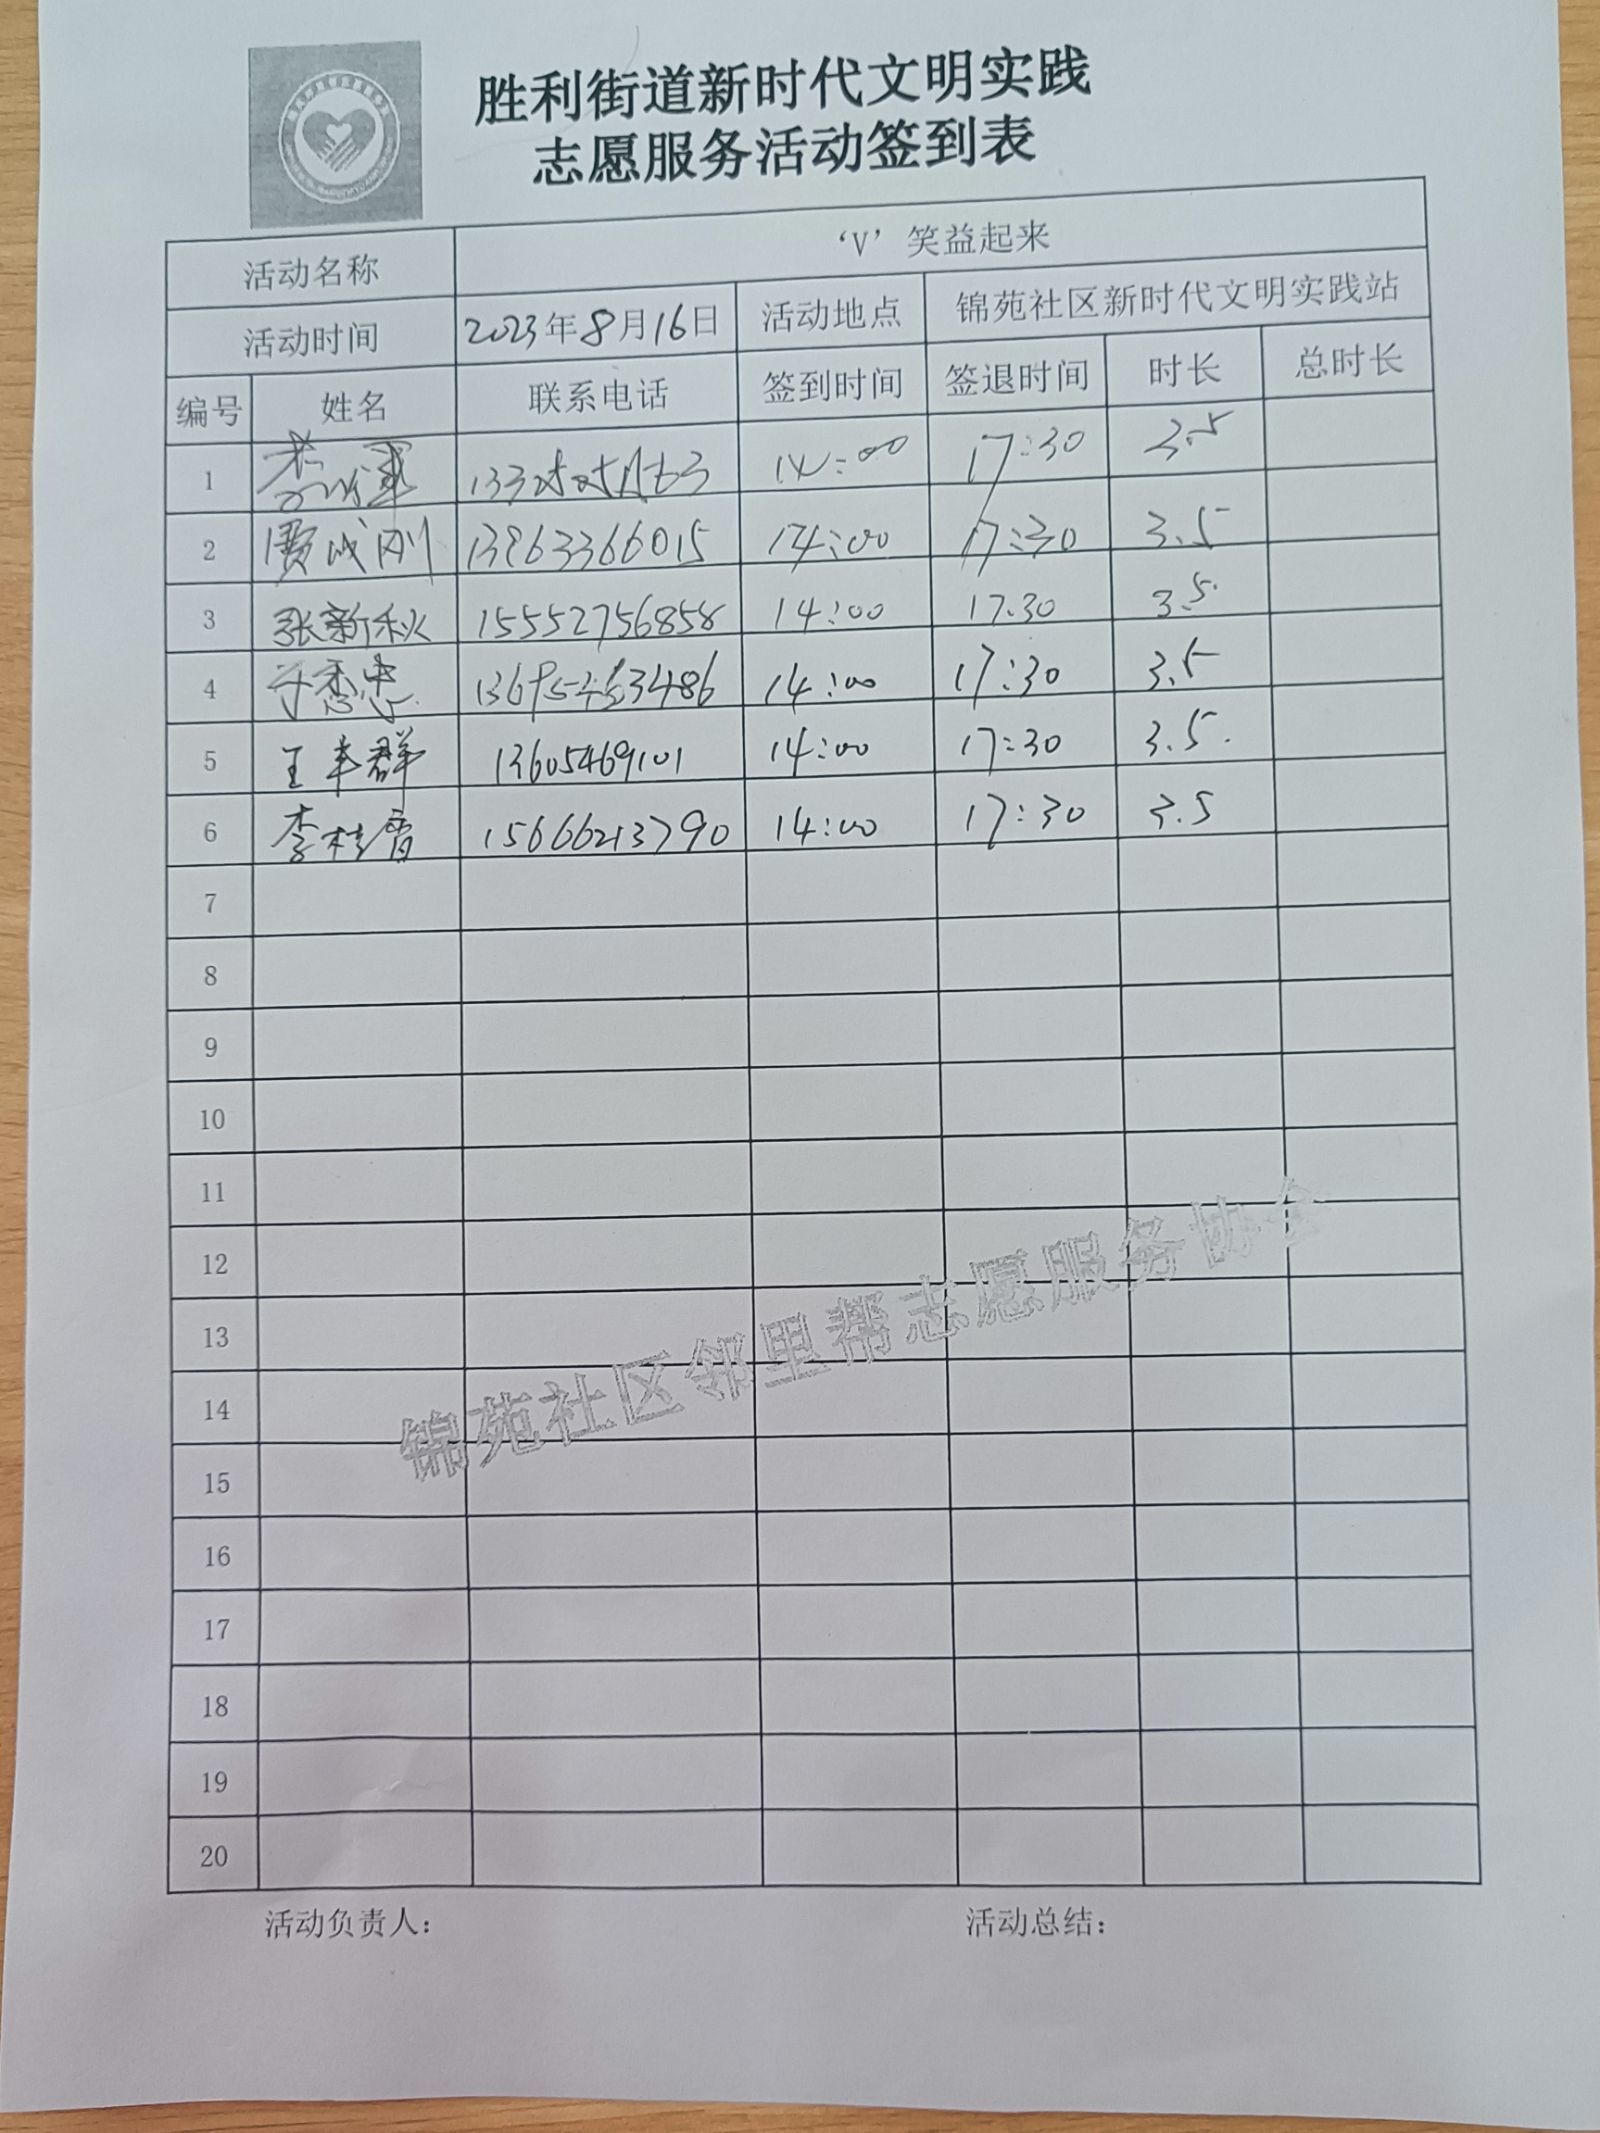 胜利街道新时代文明实践
志愿服务活动签到表
活动名称 ‘V’笑益起来
活动时间 2023年8月16日 活动地点 锦苑社区新时代文明实践站
编号 姓名 联系电话 签到时间 签退时间 时长 总时长
1 14:00 17:30 3.5
2 费成刚 13963366015 14:00 17:30 3.5
3 张新秋 15552756858 14:00 17.30 3.5
4 14:00 17:30 3.5
5 王丰群 13605469101 14:00 17:30 3.5
6 李桂香 15666213790 14:00 17:30 3.5
7
8
9
10
11
12
13
14
15
16
17
18
19
20
锦苑社区邻里帮志愿服务协会
活动负责人： 活动总结：